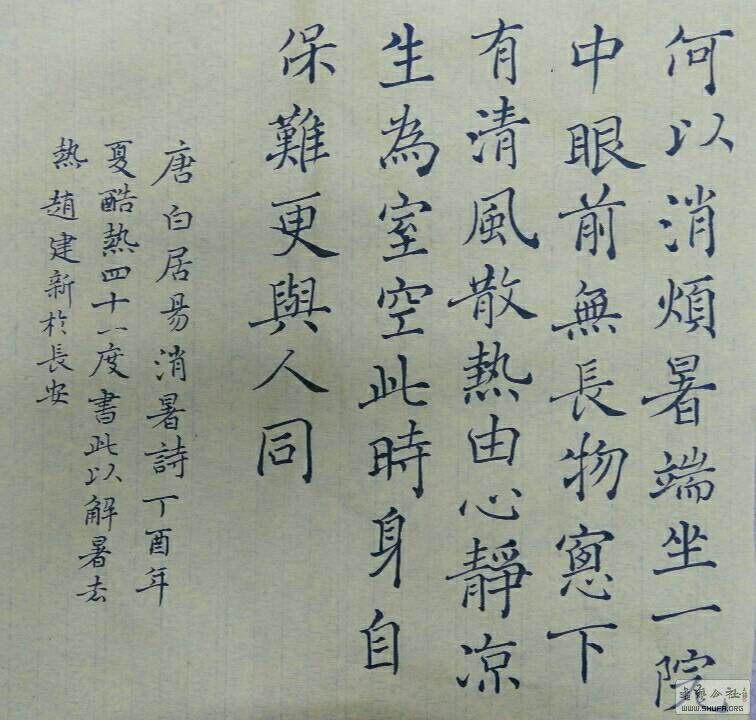 何以消煩暑端坐一院
中眼前無長物窻下
有清風散熱由心靜凉
生為室空此時身自
保難更與人同
唐白居易消暑詩丁酉年
夏酷熱四十一度書此以解暑去
熱趙建新於長安
WWW.SHUFA.ORG